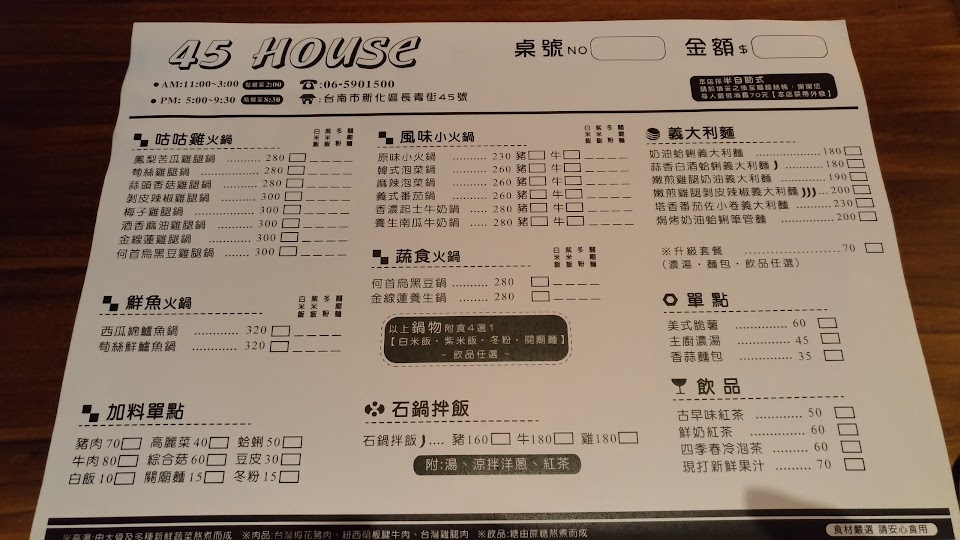 45 HOUSE
桌號NO
金額$
AM:11:00~3:00 點餐至2:00
☎:06-5901500
PM: 5:00~9:30 點餐至8:30
☎:台南市新化區長青街45號
本店採半自助式
請於填妥之後至櫃檯結帳，謝謝您
每人最低消費70元【本店禁帶外食】
咕咕雞火鍋
白米飯 紫米飯 冬粉 關廟麵
鳳梨苦瓜雞腿鍋 ........ 280
荀絲雞腿鍋 ........ 280
蒜頭香菇雞腿鍋 ........ 280
剝皮辣椒雞腿鍋 ........ 300
梅子雞腿鍋 ........ 300
酒香麻油雞腿鍋 ........ 300
金線蓮雞腿鍋 ........ 300
何首烏黑豆雞腿鍋 ........ 300
鮮魚火鍋
白米飯 紫米飯 冬粉 關廟麵
西瓜綿鱸魚鍋 ........ 320
荀絲鮮鱸魚鍋 ........ 320
加料單點
豬肉70 高麗菜40 蛤蜊50
牛肉80 綜合菇60 豆皮30
白飯10 關廟麵15 冬粉15
風味小火鍋
白米飯 紫米飯 冬粉 關廟麵
原味小火鍋 ........ 230 豬 牛
韓式泡菜鍋 ........ 260 豬 牛
麻辣泡菜鍋 ........ 260 豬 牛
義式番茄鍋 ........ 260 豬 牛
香濃起士牛奶鍋 ..... 280 豬 牛
養生南瓜牛奶鍋 ..... 280 豬 牛
蔬食火鍋
白米飯 紫米飯 冬粉 關廟麵
何首烏黑豆鍋 ........ 280
金線蓮養生鍋 ........ 280
以上鍋物附食4選1
【白米飯・紫米飯・冬粉・關廟麵】
~ 飲品任選 ~
石鍋拌飯
石鍋拌飯 .... 豬160 牛180 雞180
附:湯、涼拌洋蔥、紅茶
義大利麵
奶油蛤蜊義大利麵 ........ 180
蒜香白酒蛤蜊義大利麵 ........ 180
嫩煎雞腿奶油義大利麵 ........ 190
嫩煎雞腿剝皮辣椒義大利麵 ... 200
塔香番茄佐小卷義大利麵 ........ 230
焗烤奶油蛤蜊筆管麵 ........ 200
※升級套餐 ........ 70
（濃湯・麵包・飲品任選）
單點
美式脆薯 ........ 60
主廚濃湯 ........ 45
香蒜麵包 ........ 35
飲品
古早味紅茶 ........ 50
鮮奶紅茶 ........ 60
四季春冷泡茶 ........ 60
現打新鮮果汁 ........ 70
※高湯:由大骨及多種新鮮蔬菜熬煮而成 ※肉品:台灣梅花豬肉、紐西蘭板腱牛肉、台灣雞腿肉 ※飲品:糖由蔗糖熬煮而成
食材嚴選 請安心食用